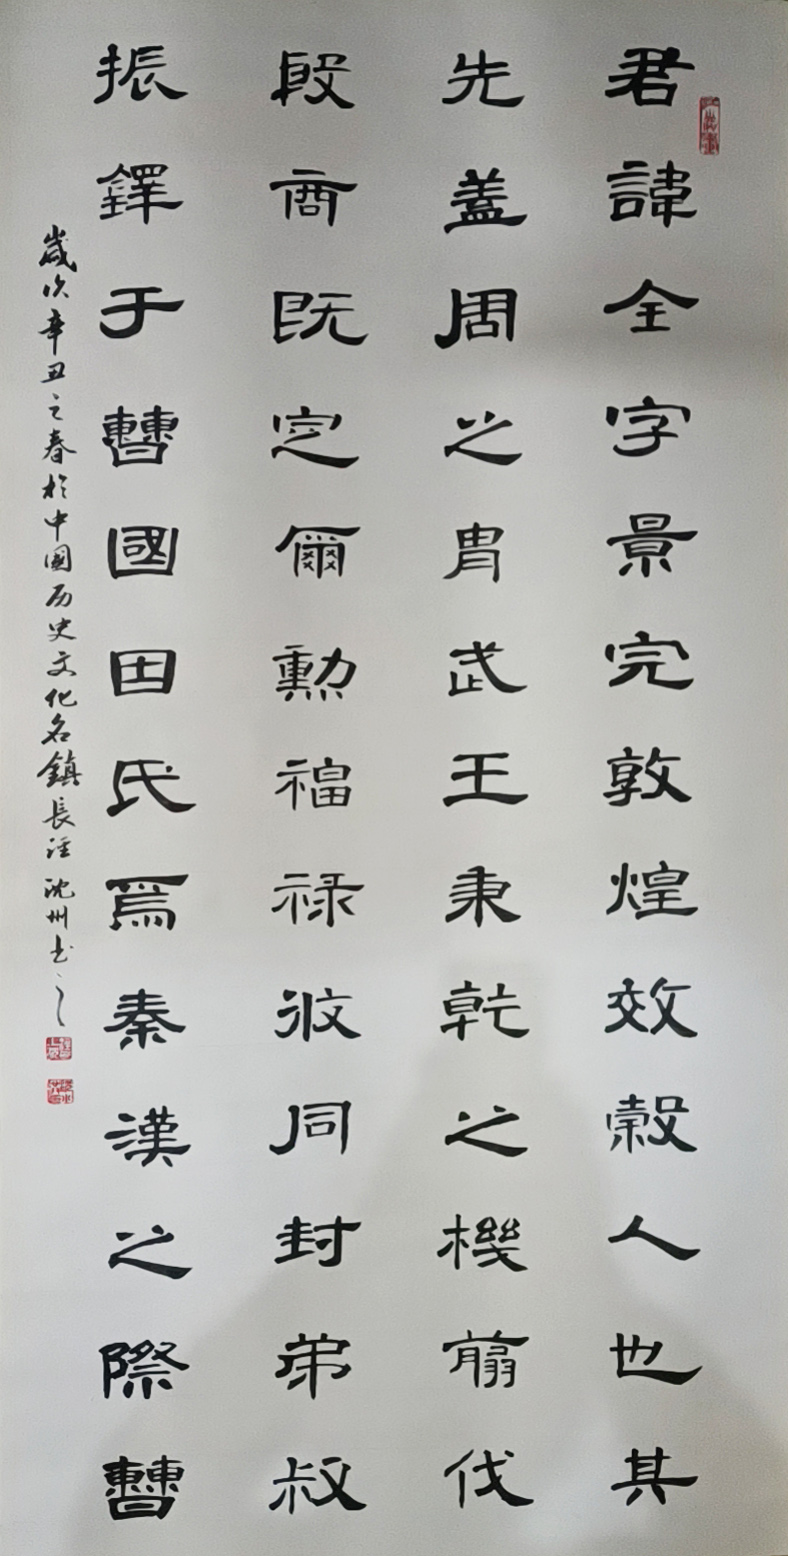 君諱全字景完敦煌效穀人也其
先蓋周之胄武王秉乾之機翦伐
殷商既定爾勳福禄攸同封弟叔
振鐸于曹國因氏焉秦漢之際曹
歲次辛丑之春於中國历史文化名鎮長泾沈州书之